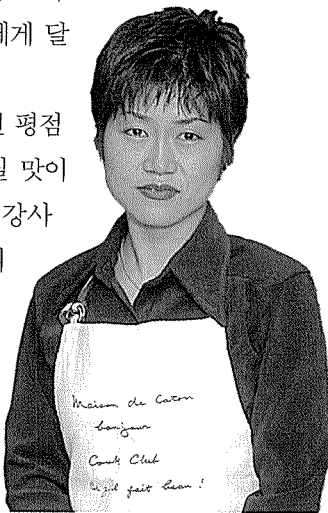 에게 달
평점
맛이
강사
Maison de Caron
bonjour
Cook Club
fait beau !